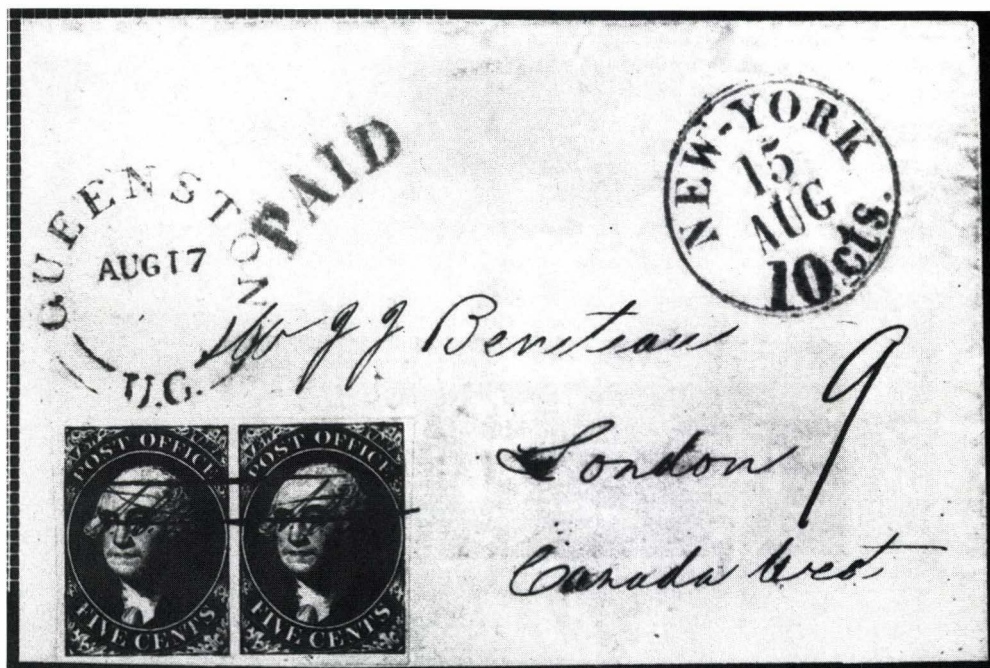 QUEENSTOWN
AUG 17
U.C.
PAID
NEW-YORK
15
AUG
10 cts.
J J Beneteau
London
9
Canada West
POST OFFICE
FIVE CENTS
POST OFFICE
FIVE CENTS